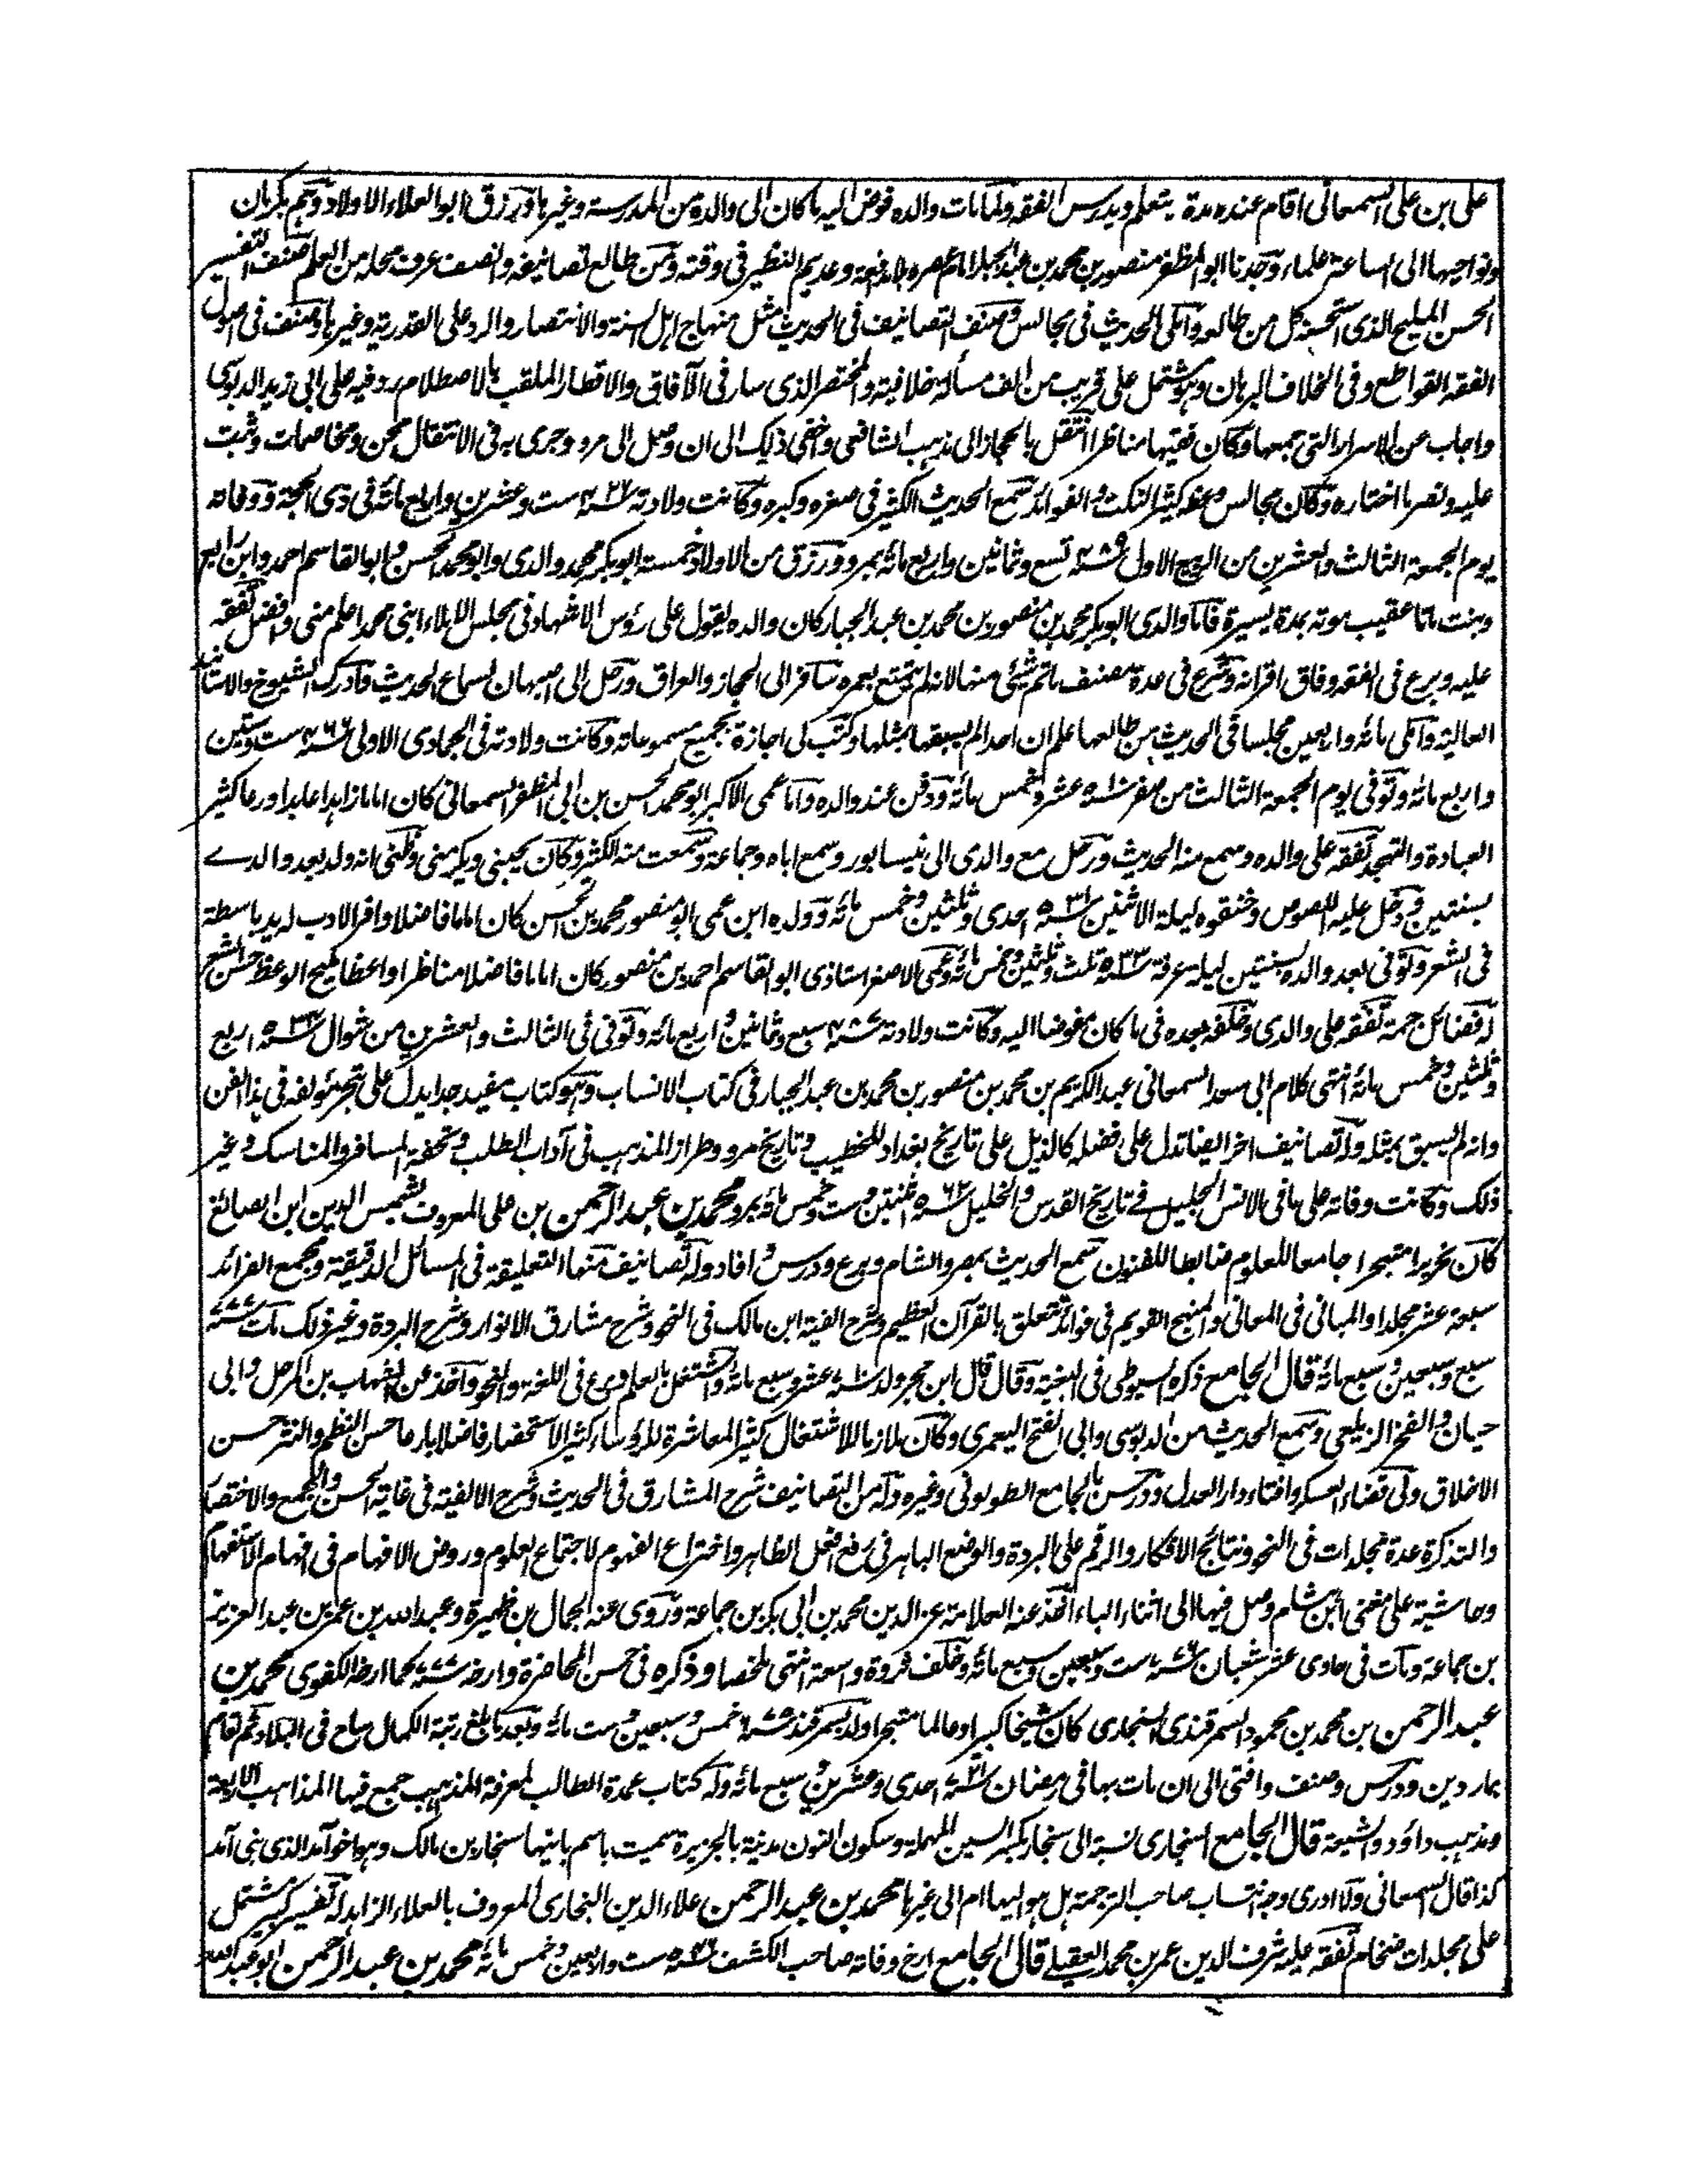 على بن على السمعانى اقام عنده مدة يتعلم ويدرس الفقه ولما مات والده فوض اليه ما كان الى والده من المدرسة وغيرها ورزق ابو العلاء الاولاد وهم بكرمان
ونواحيها الى الساعة علماء وجدنا ابو المظفر منصور بن محمد بن عبد الجبار امام عصره بلا مدافعة وعديم النظير فى وقته ومن طالع تصانيفه وانصف عرف محله من العلم صنف التفسير
الحسن المليح الذى استحسنه كل من طالعه واملى الحديث فى مجالس وصنف التصانيف فى الحديث مثل منهاج اهل السنة والانتصار والرد على القدرية وغيرها وصنف فى اصول
الفقه القواطع وفى الخلاف البرهان وهو مشتمل على قريب من الف مسألة خلافية والمختصر الذى سار فى الآفاق والاقطار الملقب بالاصطلام رد فيه على ابى زيد الدبوسى
واجاب عن الاسرار التى جمعها وكان فقيها مناظرا انتقل بالحجاز الى مذهب الشافعى واخفى ذلك الى ان وصل الى مرو وجرى به فى الانتقال محن ومخاصمات وثبت
عليه ونصر ما اختاره وكان مجالس وعظه كثير النكت والفوائد سمع الحديث الكثير فى صغره وكبره وكانت ولادته سنة ۴۲۶ ست وعشرين واربع مائة فى ذى الحجة ووفاته
يوم الجمعة الثالث والعشرين من الربيع الاول سنة ۴۸۹ تسع وثمانين واربع مائة بمرو ورزق من الاولاد خمسة ابو بكر محمد والدى وابو محمد الحسن وابو القاسم احمد وابن رابع
وبنت ماتا عقيب موته بمدة يسيرة فاما والدى ابو بكر محمد بن منصور بن محمد بن عبد الجبار كان والده يقول على رؤس الاشهاد فى مجلس الاملاء ابنى محمد اعلم منى وافضل تفقه
عليه وبرع فى الفقه وفاق اقرانه وشرع فى عدة مصنف ما تم شئ منها لانه لم يتمتع بعمره سافر الى الحجاز والعراق ورحل الى اصبهان لسماع الحديث فادرك الشيوخ والاسانيد
العالية واملى مائة واربعين مجلسا فى الحديث من طالعها علم ان احدا لم يسبقها بمثلها وكتب لى اجازة بجميع مسموعاته وكانت ولادته فى الجمادى الاولى سنة ۴۶۶ ست وستين
واربع مائة وتوفى يوم الجمعة الثالث من صفر سنة ۵۱۰ عشر وخمس مائة ودفن عند والده واما عمى الاكبر ابو محمد الحسن بن ابى المظفر السمعانى كان اماما زاهدا عابدا ورعا كثير
العبادة والتهجد تفقه على والده وسمع منه الحديث ورحل مع والدى الى نيسابور وسمع اباه وجماعة وسمعت منه الكثير وكان يحبنى ويكرمنى وظنى انه ولد بعد والدے
بسنتين ودخل عليه اللصوص وخنقوه ليلة الاثنين سنة ۵۳۱ احدى وثلثين وخمس مائة وولده ابن عمى ابو منصور محمد بن الحسن كان اماما فاضلا وافر الادب له يد باسطة
فى الشعر وتوفى بعد والده بسنتين ليلة عرفة سنة ۵۳۳ ثلث وثلثين وخمس مائة وعمى الاصغر استاذى ابو القاسم احمد بن منصور كان اماما فاضلا مناظرا واعظا مليح الوعظ حسن الشعر
له فضائل جمة تفقه على والدى وخلفه بعده فى ما كان مفوضا اليه وكانت ولادته سنة ۴۸۷ سبع وثمانين واربع مائة وتوفى فى الثالث والعشرين من شوال سنة ۵۳۴ اربع
وثلثين وخمس مائة انتهى كلام ابى سعد السمعانى عبد الكريم بن محمد بن منصور بن محمد بن عبد الجبار فى كتاب الانساب وهو كتاب مفيد جدا يدل على تبحر مؤلفه فى هذا الفن
وانه لم يسبق بمثله وله تصانيف اخر ايضا تدل على فضله كالذيل على تاريخ بغداد للخطيب وتاريخ مرو وطراز المذهب فى آداب الطلب وتحفة المسافر والمناسك وغير
ذلك وكانت وفاته على ما فى الانس الجليل فے تاريخ القدس والخليل سنة ۵۶۲ اثنتين وست وخمس مائة بمرو محمد بن عبد الرحمن بن على المعروف بشمس الدين ابن الصائغ
كان نحريرا متبحرا جامعا للعلوم ضابطا للفنون سمع الحديث بمصر والشام وبرع ودرس وافاد وله تصانيف منها التعليقة فى المسائل الدقيقة ومجمع الفرائد
سبعة عشر مجلدا والمبانى فى المعانى والمنهج القويم فى فوائد تتعلق بالقرآن العظيم وشرح الفية ابن مالك فى النحو وشرح مشارق الانوار وشرح البردة وغير ذلك مات سنة ۷۷۷
سبع وسبعين وسبع مائة قال الجامع ذكره السيوطى فى البغية وقال قال ابن حجر ولد سنة ۷۱۰ عشر وسبع مائة واشتغل بالعلم وبرع فى اللغة والنحو واخذ عن الشهاب بن المرحل وابى
حيان والفخر الزيلعى وسمع الحديث من الدبوسى وابى الفتح اليعمرى وكان ملازما للاشتغال كثير المعاشرة للرؤساء كثير الاستحضار فاضلا بارعا حسن النظم والنثر حسن
الاخلاق ولى قضاء العسكر وافتاء دار العدل ودرس بالجامع الطولونى وغيره وله من التصانيف شرح المشارق فى الحديث وشرح الالفية فى غاية الحسن والجمع والاختصار
والتذكرة عدة مجلدات فى النحو ونتائج الافكار والرقم على البردة والوضع الباهر فى رفع افعل الظاهر واختراع الفهوم لاجتماع العلوم وروض الافهام فى اقسام الاستفهام
وحاشية على مغنى ابن هشام وصل فيها الى اثناء الباء اخذ عنه العلامة عز الدين محمد بن ابى بكر بن جماعة وروى عنه الجمال بن ظهيرة وعبد الله بن عمر بن عبد العزيز
بن جماعة ومات فى حادى عشر شعبان سنة ۷۷۶ ست وسبعين وسبع مائة وخلف ثروة واسعة انتهى ملخصا وذكره فى حسن المحاضرة وارخه سنة ۷۷۷ كما ارخه الكفوى محمد بن
عبد الرحمن بن محمد بن محمود السمرقندى السنجارى كان شيخا كبيرا وعالما متبحرا ولد بسمرقند سنة ۶۷۵ خمس وسبعين وست مائة وبعد ما بلغ رتبة الكمال ساح فى البلاد ثم اقام
بماردين ودرس وصنف وافتى الى ان مات بها فى رمضان سنة ۷۲۱ احدى وعشرين وسبع مائة وله كتاب عمدة الطالب لمعرفة المذاهب جمع فيها المذاهب الاربعة
ومذهب داؤد والشيعة قال الجامع السنجارى نسبة الى سنجار بكسر السين المهملة وسكون النون مدينة بالجزيرة سميت باسم بانيها سنجار بن مالك وهو اخو آمد الذى بنى آمد
كذا قال السمعانى ولا ادرى وجه انتساب صاحب الترجمة هل هو اليها ام الى غيرها محمد بن عبد الرحمن علاء الدين البخارى المعروف بالعلاء الزاهد له تفسير كبير مشتمل
على مجلدات ضخام تفقه عليه شرف الدين عمر بن محمد العقيلے قال الجامع ارخ وفاته صاحب الكشف سنة ۵۴۶ ست واربعين وخمس مائة محمد بن عبد الرحمن ابو عبد الله